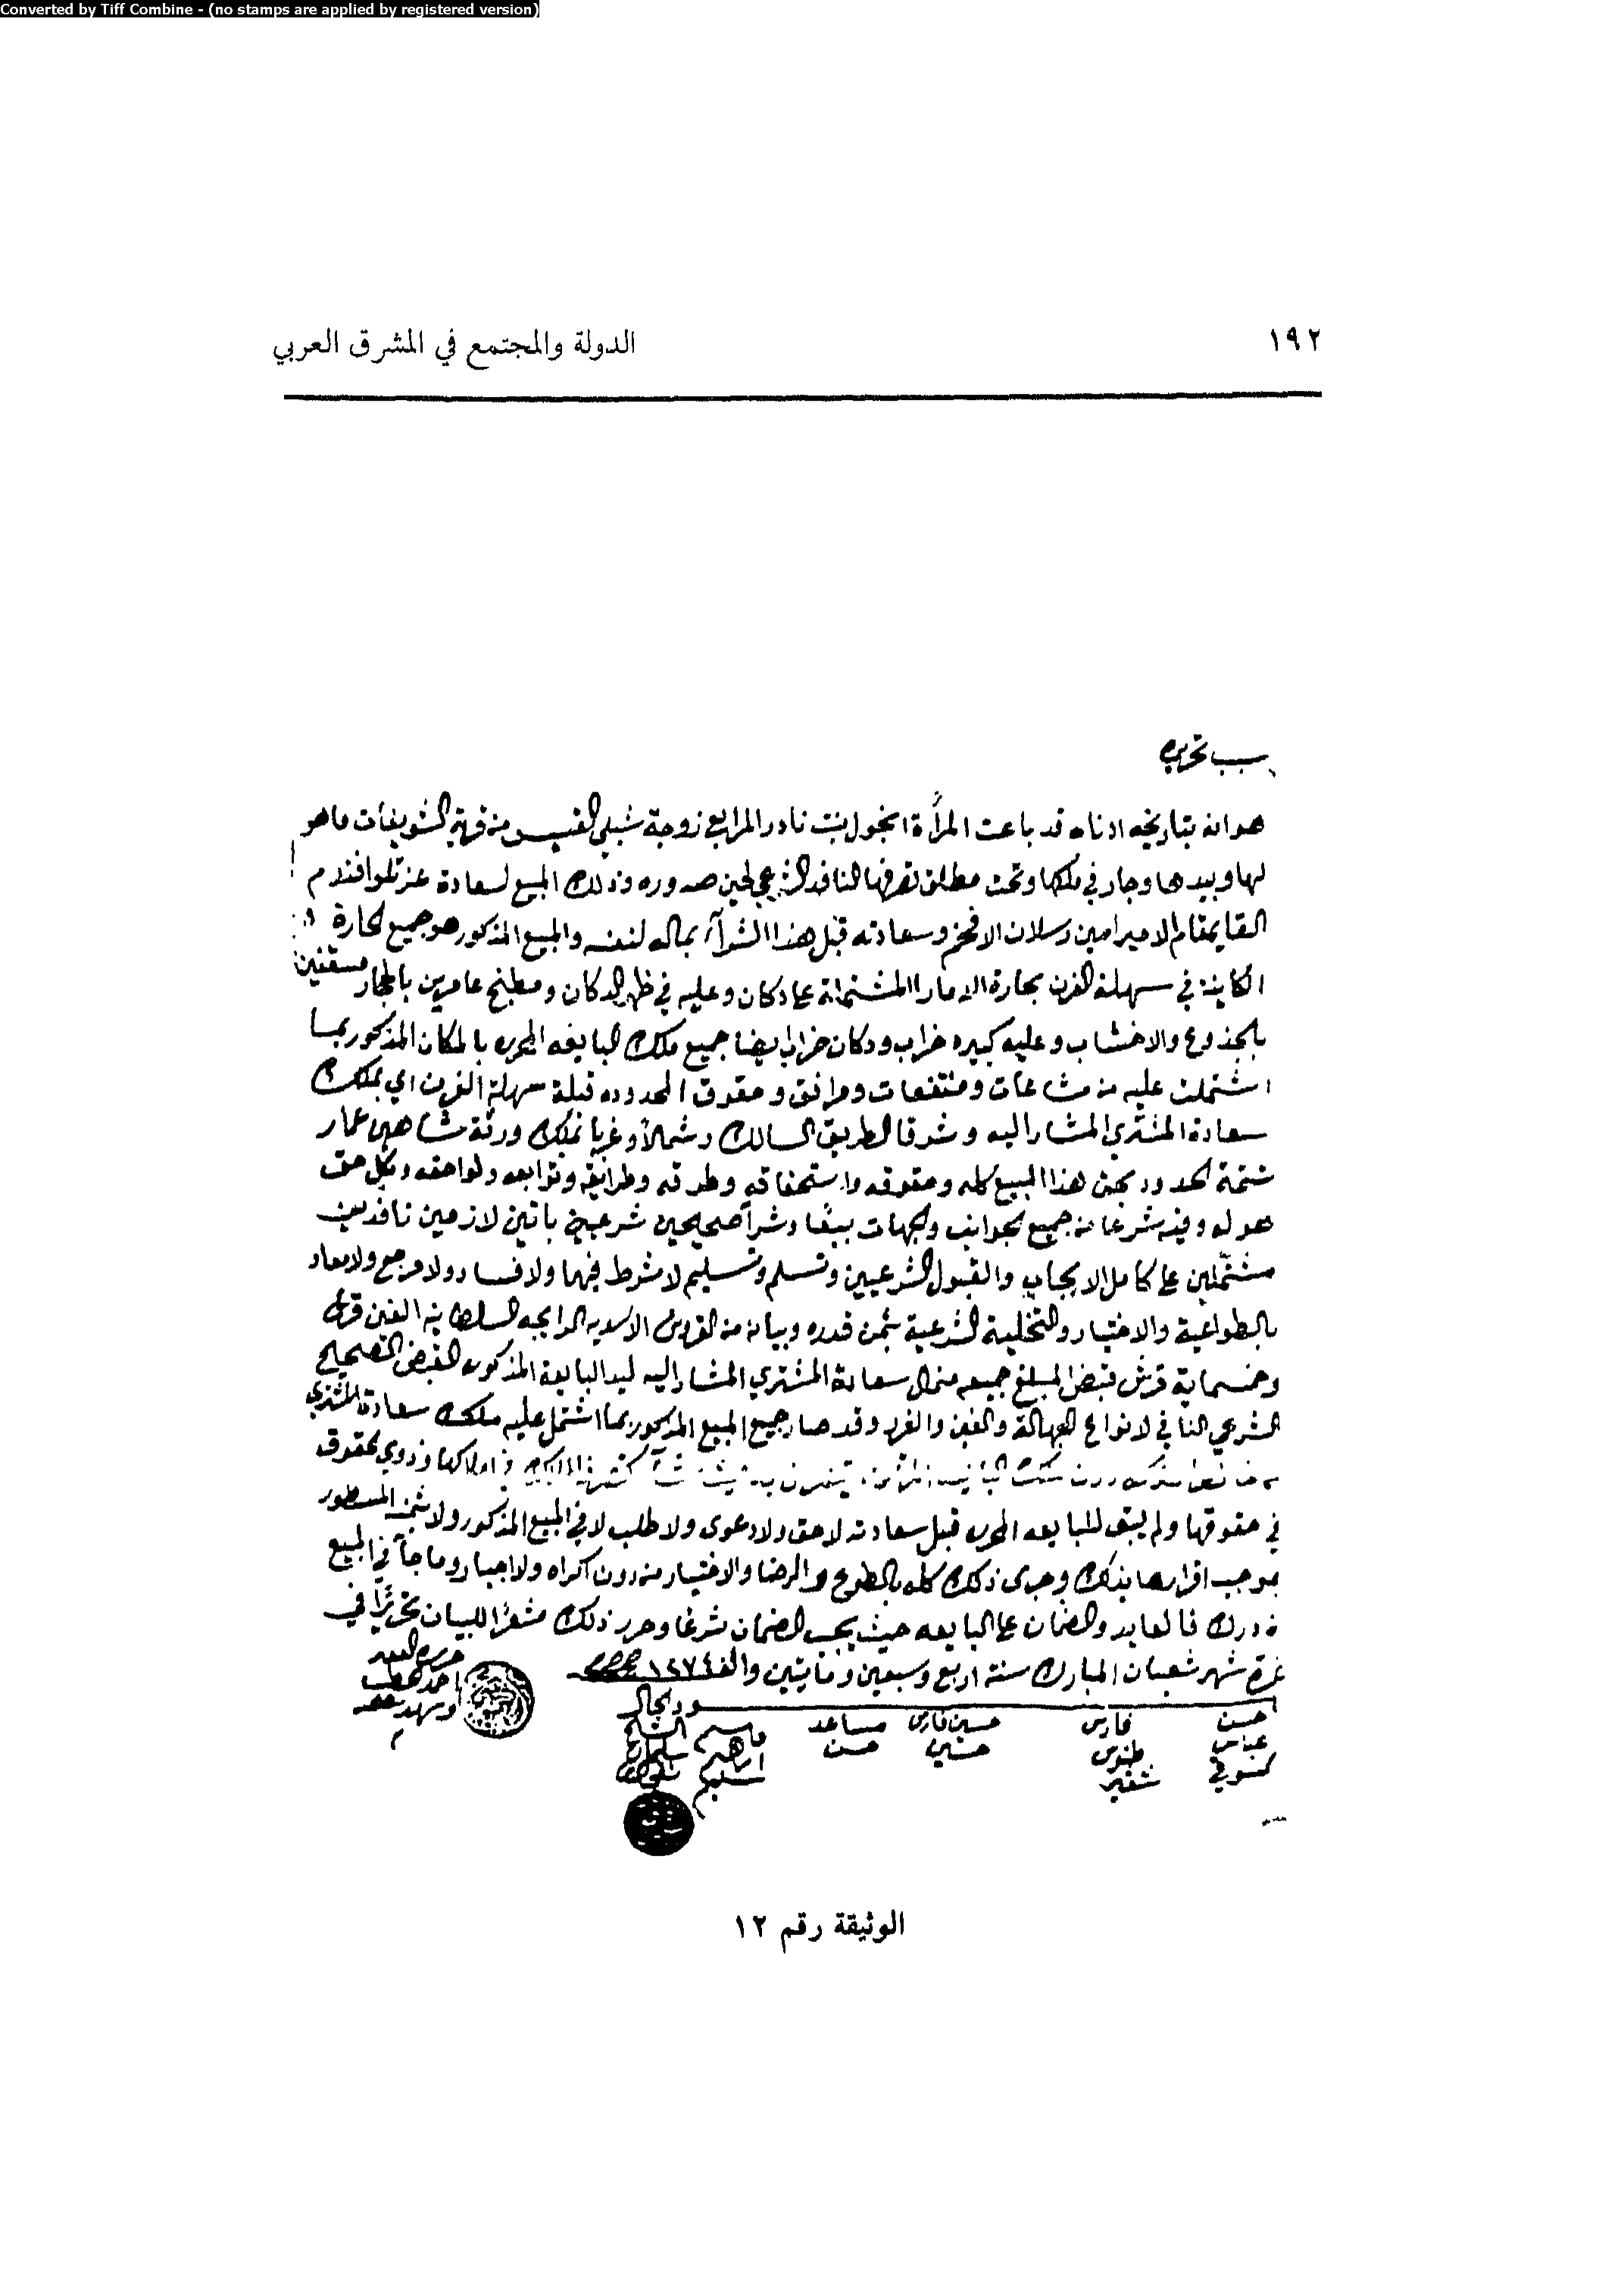 Converted by Tiff Combine - (no stamps are applied by registered version)
١٩٢
الدولة والمجتمع في المشرق العربي
سبب تحريره
هو انه بتاريخه ادناه قد باعت المرأة بنت نادر المرابع زوجة شبلي من قرية الشويفات ما هو
لها وبيدها وجار في ملكها وتحت مطلق تصرفها النافد الشرعي لحين صدوره وذلك المبيع لسعادة عزتلو افندم
القايمقام الامير امين رسلان الافخم وسعادته قبل هذا الشرآء بماله لنفسه والمبيع المذكور هو جميع الحارة
الكاينة في سهلة الفرن بحارة المشتملة على دكان وعليه في ظهر الدكان ومطبخ عامرين بالحجار مسقفين
بالجذوع والاخشاب وعليه كبيره خراب ودكان خراب ايضا جميع ملك البايعه المحرره بالمكان المذكور بما
اشتملت عليه من مشاعات ومنتفعات ومرافق وحقوق المحدوده قبلة سهلة الفرن اي بملك
سعادة المشتري المشار اليه وشرقا الطريق السالك وشمالا وغربا بملك ورثة شاهين عمار
تتمة الحدود بجق هذا المبيع كله وحقوقه واستحقاقه وطرقه وطرايقه وتوابعه ولواحقه وبكل حق
هو له وفيه شرعا من جميع الجوانب والجهات بيعا وشرآ صحيحين شرعيين باتين لازمين نافدين
مشتملين على كامل الايجاب والقبول الشرعيين وتسلم وتسليم لا شرط فيها ولا فساد ولا مرجع ولا معاد
بالطواعية والاختيار والتخلية الشرعية بثمن قدره وبيانه من القروش الاسديه الرايجه السلطانيه الفين قرش
وخمسماية قرش قبض المبلغ جميعه من مال سعادة المشتري المشار اليه ليد البايعة المذكوره القبض الصحيح
الشرعي النافي لانواع الجهالة والغبن والغرر وقد صار جميع المبيع المذكور بما اشتمل عليه ملك سعادة المشتري
في املاكها وذوي الحقوق
في حقوقها ولم يبق للبايعه المحرره قبل سعادته لا حق ولا دعوى ولا طلب لا في المبيع المذكور ولا ثمنه المسطور
بموجب اقرارها بذلك وجرى ذلك كله بالطوع والرضا والاختيار من دون اكراه ولا اجبار وما جآ في المبيع
من درك فالعايد والضمان على البايعه حيث يجب الضمان شرعا وحرر ذلك مشعرا للبيان تحريرا في
غرة شهر شعبان المبارك سنة اربع وسبعين ومايتين والف ١٢٧٤
حرره العبد
احمد
حسن
عباس
فارس
طنوس
شقير
حسين فارس
حسين
مساعد
حسن
قاسم
ابراهيم
سليم
الشيخ
الوثيقة رقم ١٢